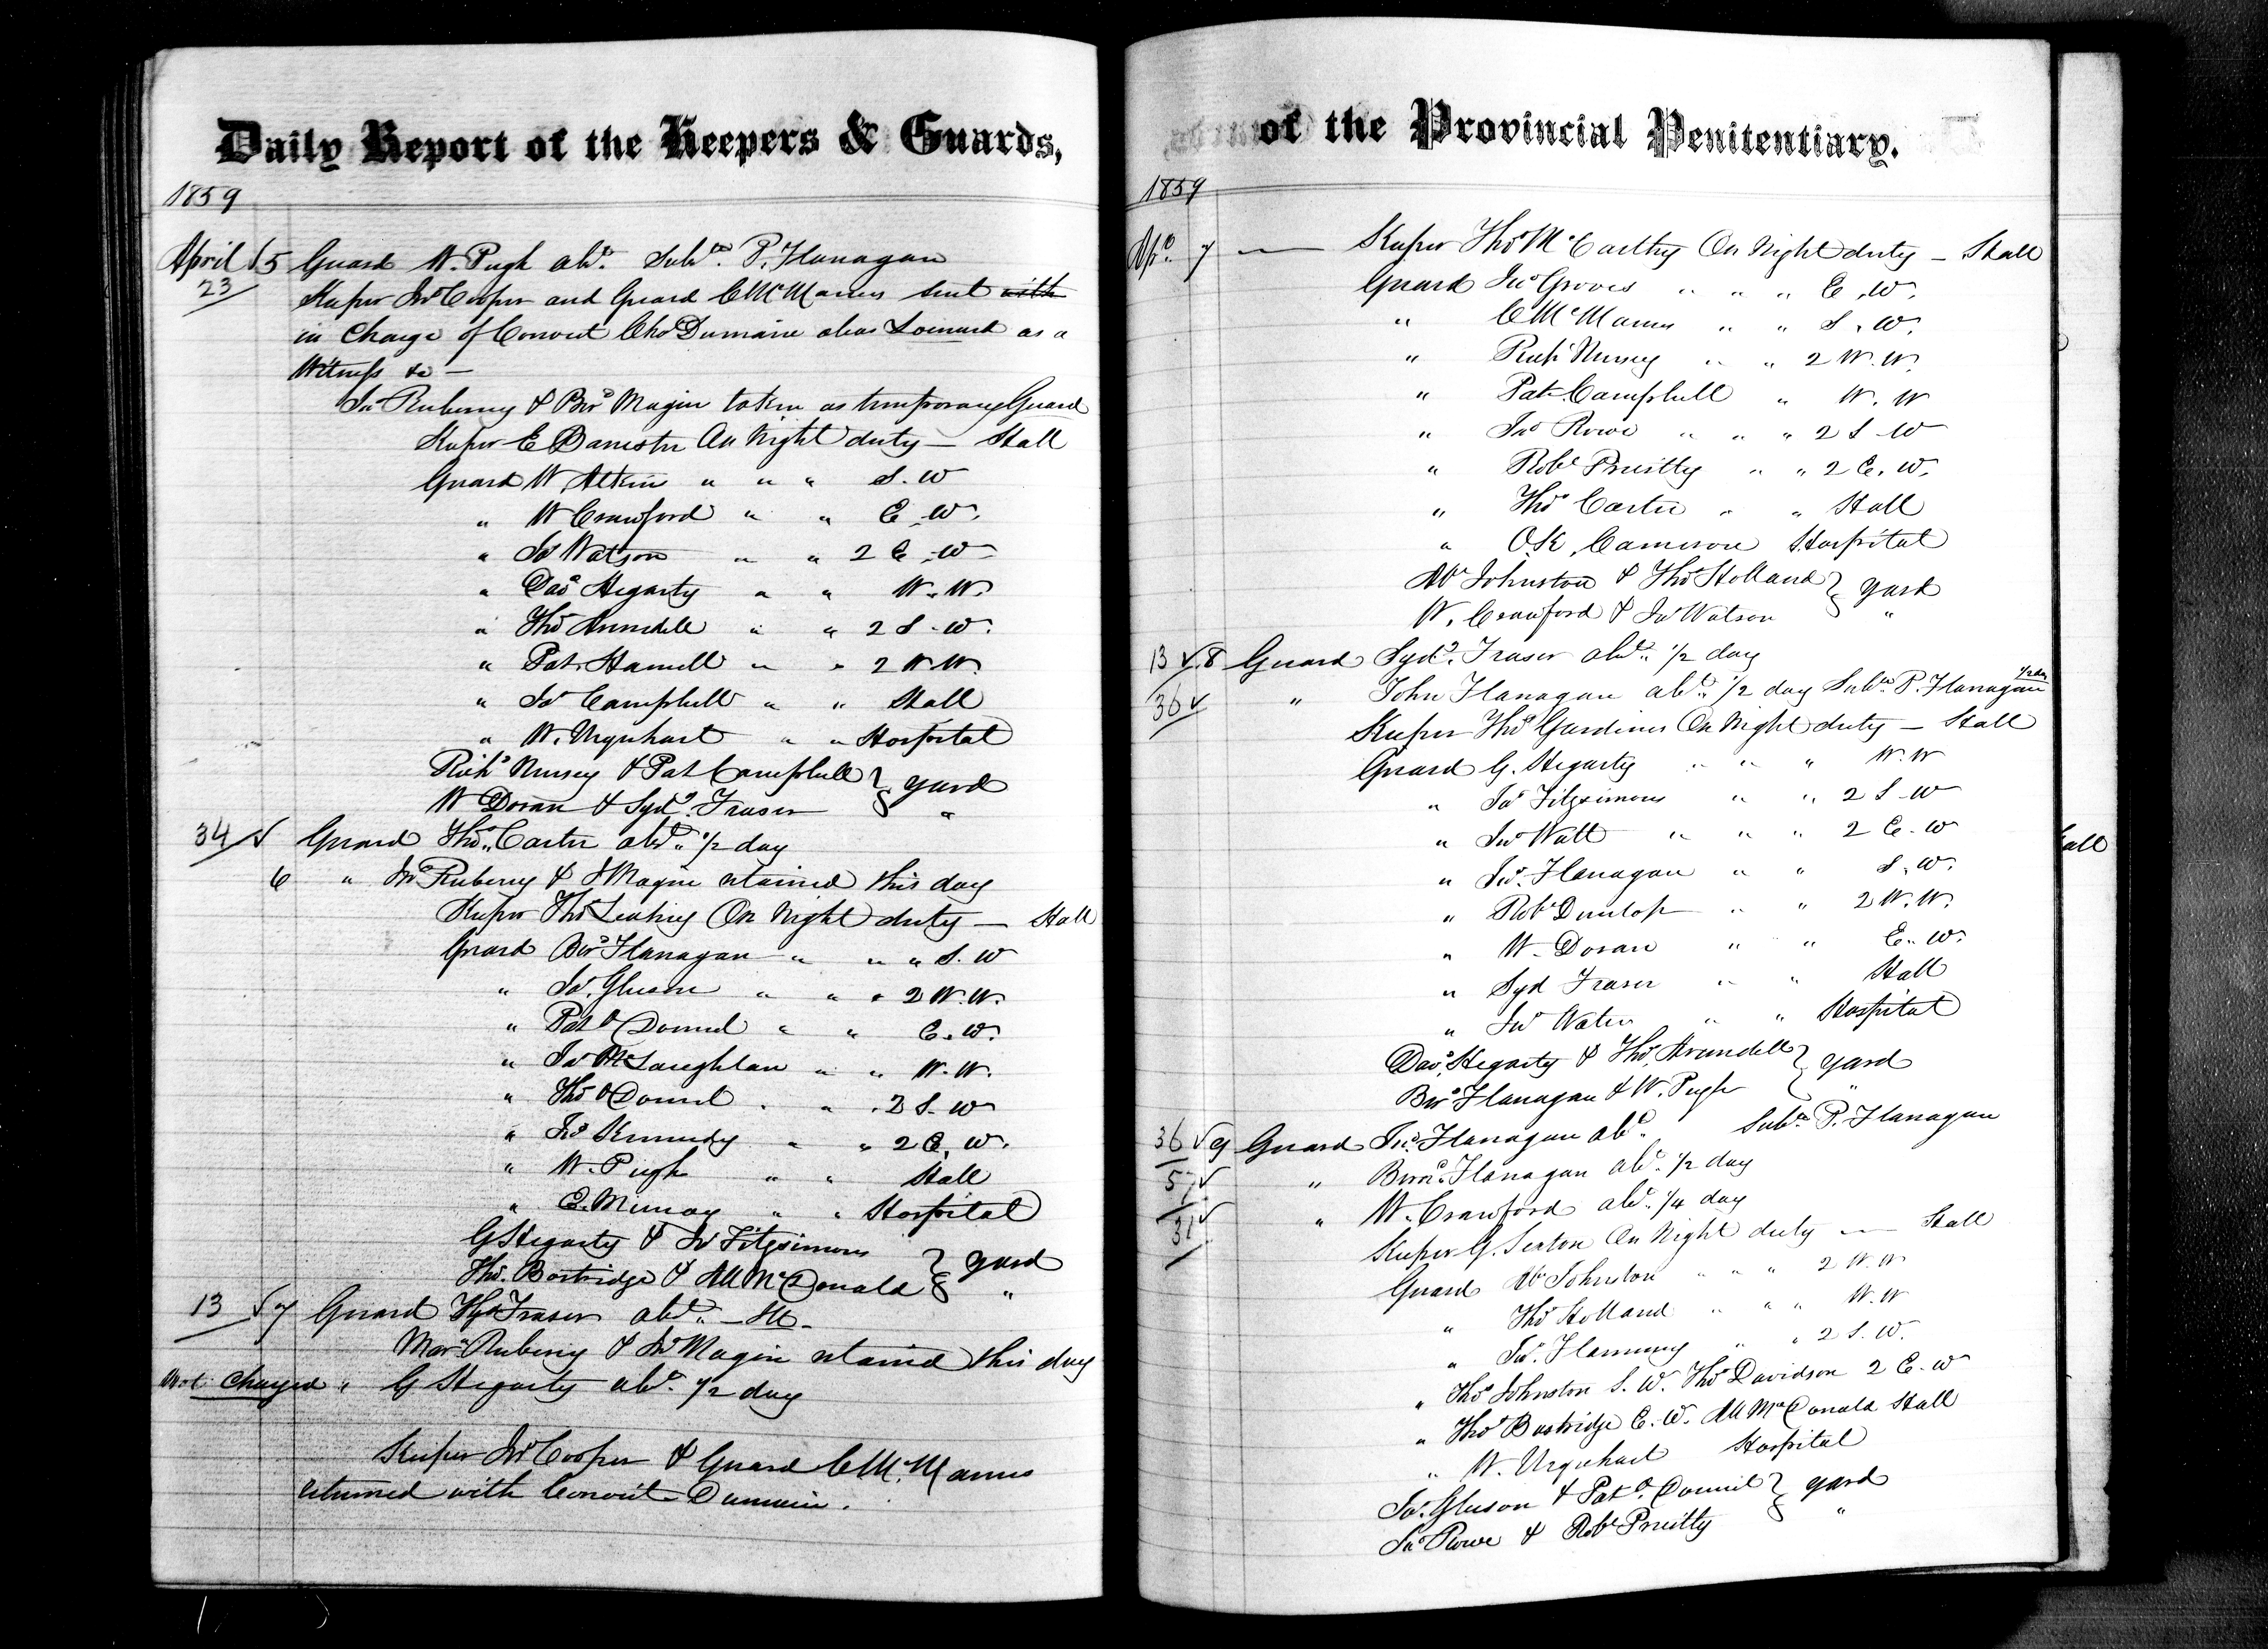 Daily Report of the Keepers & Guards,
1859
April 5 Guard W. Pugh abt. Subte. P. Flanagan
23 Keeper Jno Cooper and Guard C McManus sent with
in Charge of Convict Chs Dumaine alias as a
Witness &c —
Jno Ruberry & Brd Magin taken as temporary Guard
Keeper E Banister On Night duty — Hall
Guard W. Atkins " " " S. W
" W Crawford " " E. W.
" Jas Watson " " 2 E. W
" Davd Hegarty " " W. W.
" Thos Arundell " " 2 S. W.
" Pat. Hamill " " 2 W. W.
" Jas Campbell " " Hall
" W. Urquhart " " Hospital
Richd Nursey & Pat Campbell } yard
W Doran & Sydy. Fraser "
34 Guard Thos. Carter abt. 1/2 day
6 " Jno Ruberry & J Magin retained this day
Keeper Thos Leahy On Night duty — Hall
Guard Brd Flanagan " " " S. W
" Jas. Gleeson " " " 2 W. W.
" Patk O'Donnel " " E. W.
" Jas McLaughlan " " W. W.
" Thos O'Donnel " " 2 S. W
" Jno Kennedy " " 2 E. W.
" W. Pugh " " Hall
" E. Murray " " Hospital
G Hegarty & Jas Fitzsimons } yard
Thos. Bostridge & All McDonald "
13 7 Guard Syd Fraser abt. —
Ruberry & Jno Magin retained this day
Not Charged " G Hegarty abt. 1/2 day
Keeper Jno Cooper & Guard C McManus
returned with Convict Dumain.
of the Provincial Penitentiary.
1859
Apl. 7 — Keeper Thos McCarthy On Night duty — Hall
Guard Jno Groves " " " E. W.
" C McManus " " S. W.
" Richd Nursey " " 2 W. W.
" Pat Campbell " W. W
" Jno Rowe " " " 2 S. W
" Robt Priestly " " 2 E. W.
" Thos Carter " " Hall
" O.K. Cameron Hospital
Johnston & Thos Holland } yard
W. Crawford & Jas Watson "
13 8 Guard Sydy. Fraser abt. 1/2 day
36 " John Flanagan abt. 1/2 day Subte. P. Flanagan 1/2 day
Keeper Thos Gardiner On Night duty — Hall
Guard G. Hegarty " " " W. W
" Jas Fitzsimons " " 2 S. W
" Jno Watt " " " 2 E. W
" Jno. Flanagan " " S. W.
" Robt Dunlop " " 2 W. W.
" W. Doran " " E. W.
" Syd Fraser " " Hall
" Jno Water " " Hospital
Davd. Hegarty & Thos. Arundell } yard
Brd Flanagan & W. Pugh "
36 9 Guard Jno. Flanagan abt. Subte. P. Flanagan
5 " Bernd. Flanagan abt. 1/2 day
31 " W. Crawford abt. 1/4 day
Keeper G. Sexton On Night duty — Hall
Guard Johnston " " " 2 W. W
" Thos Holland " " " W. W
" Jno. Flemming " " 2 S. W.
" Thos Johnston S. W. Thos Davidson 2 E. W
" Thos Bostridge E. W. All McDonald Hall
" W. Urquhart Hospital
Jas. Gleeson & Pat O'Donnel } yard
Jno Rowe & Robt Priestly "
all